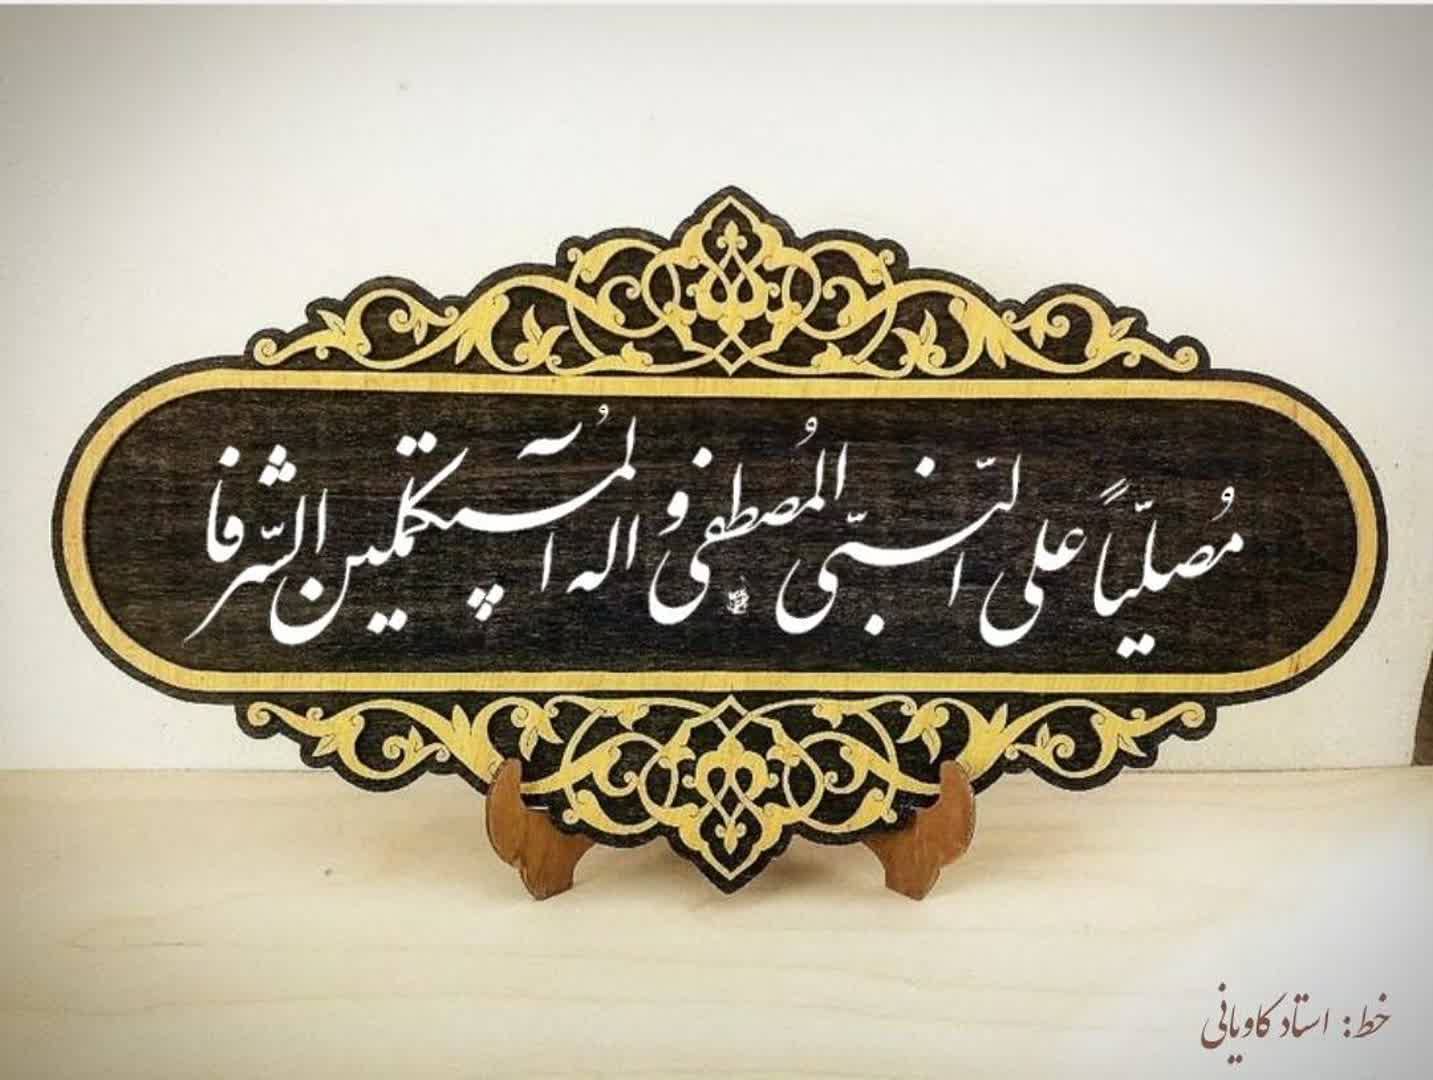 مُصلیّاً علی النّبیّ المُصطفی و اله المُستکملین الشّرفا
خط: استاد کاویانی